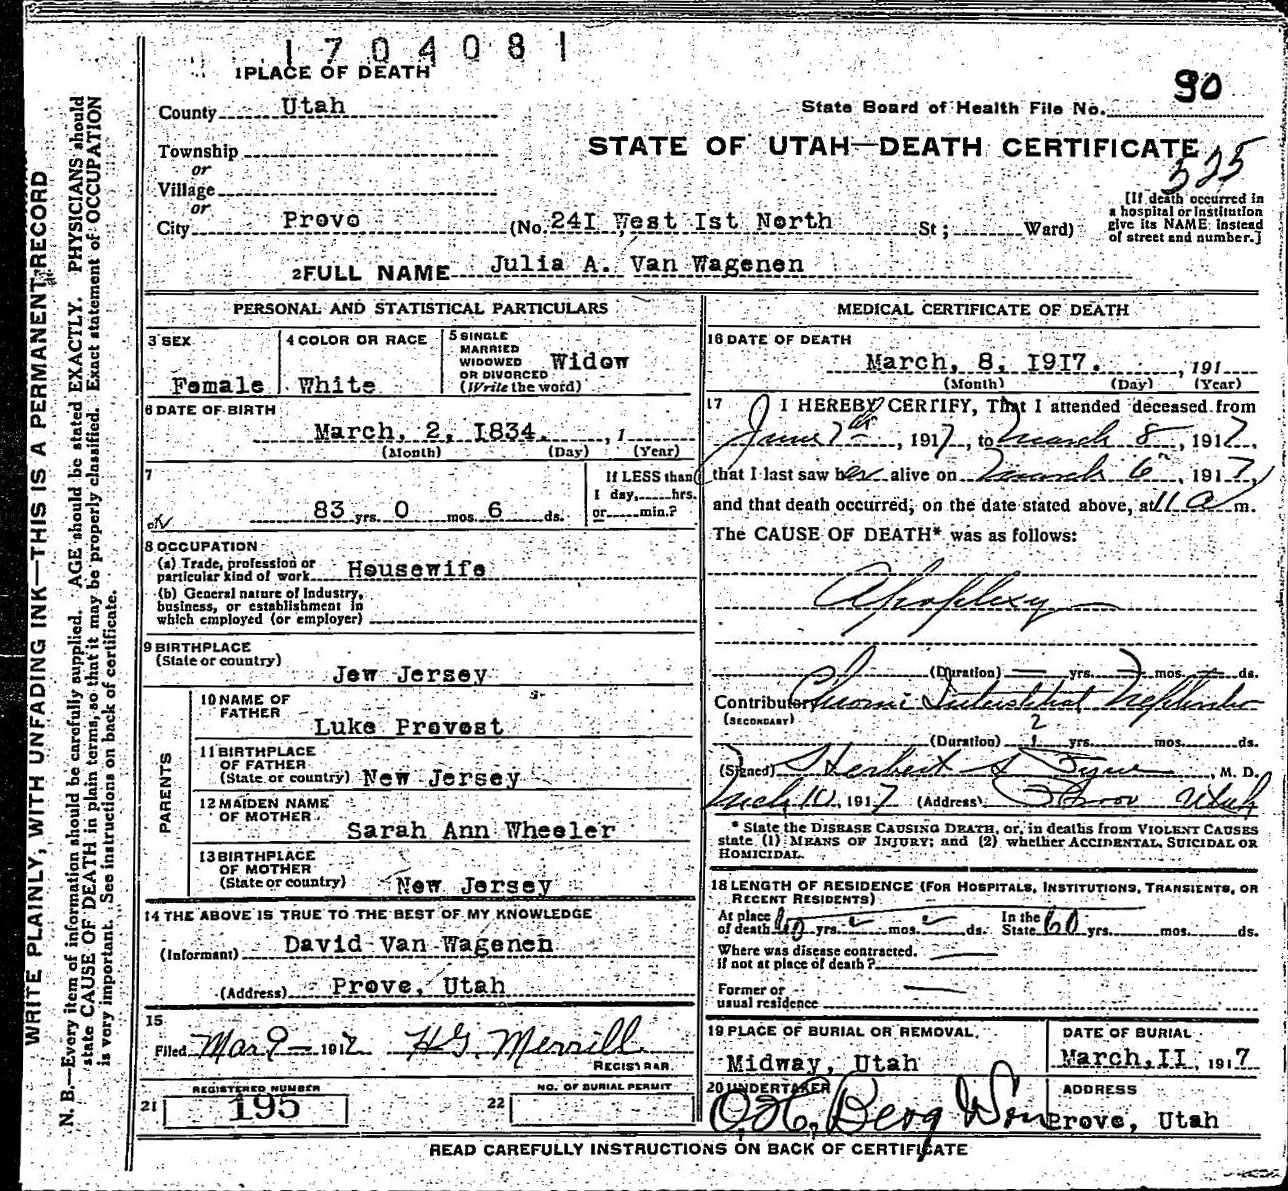 1704081
1 PLACE OF DEATH
90
County Utah
State Board of Health File No.
STATE OF UTAH—DEATH CERTIFICATE
525
Township
or
Village
or
City Provo (No. 24I West Ist North St; Ward)
[If death occurred in
a hospital or institution
give its NAME instead
of street and number.]
2 FULL NAME Julia A. Van Wagenen
PERSONAL AND STATISTICAL PARTICULARS
3 SEX
Female
4 COLOR OR RACE
White
5 SINGLE
MARRIED
WIDOWED
OR DIVORCED
(Write the word)
Widow
6 DATE OF BIRTH
March, 2, I834. , 1
(Month) (Day) (Year)
7
83 yrs. 0 mos. 6 ds.
If LESS than
1 day, hrs.
or min.?
8 OCCUPATION
(a) Trade, profession or
particular kind of work Housewife
(b) General nature of Industry,
business, or establishment in
which employed (or employer)
9 BIRTHPLACE
(State or country)
Jew Jersey
PARENTS
10 NAME OF
FATHER
Luke Provost
11 BIRTHPLACE
OF FATHER
(State or country) New Jersey
12 MAIDEN NAME
OF MOTHER
Sarah Ann Wheeler
13 BIRTHPLACE
OF MOTHER
(State or country) New Jersey
14 THE ABOVE IS TRUE TO THE BEST OF MY KNOWLEDGE
(Informant) David Van Wagenen
(Address) Provo, Utah
15
Filed Mar 9 - 1917 H G. Merrill
REGISTRAR
REGISTERED NUMBER
21 195
NO. OF BURIAL PERMIT
22
MEDICAL CERTIFICATE OF DEATH
16 DATE OF DEATH
March, 8, I917. , 191
(Month) (Day) (Year)
17 I HEREBY CERTIFY, That I attended deceased from
June 7th, 1917, to March 8, 1917,
that I last saw her alive on March 6", 1917,
and that death occurred, on the date stated above, at 11 a m.
The CAUSE OF DEATH* was as follows:
Apoplexy
(Duration) yrs. mos. ds.
Contributory Chronic Interstitial Nephritis
(SECONDARY)
(Duration) 2 yrs. mos. ds.
(Signed) Herbert S Pyne, M. D.
Mch 10, 1917 (Address) Provo Utah
* State the DISEASE CAUSING DEATH, or, in deaths from VIOLENT CAUSES
state (1) MEANS OF INJURY; and (2) whether ACCIDENTAL, SUICIDAL OR
HOMICIDAL.
18 LENGTH OF RESIDENCE (FOR HOSPITALS, INSTITUTIONS, TRANSIENTS, OR
RECENT RESIDENTS)
At place
of death yrs. mos. ds.
In the
State 60 yrs. mos. ds.
Where was disease contracted,
if not at place of death?
Former or
usual residence
19 PLACE OF BURIAL OR REMOVAL
Midway, Utah
DATE OF BURIAL
March, II, 1917
20 UNDERTAKER
O. H. Berg & Son
ADDRESS
Provo, Utah
READ CAREFULLY INSTRUCTIONS ON BACK OF CERTIFICATE
WRITE PLAINLY, WITH UNFADING INK—THIS IS A PERMANENT RECORD
N. B.—Every item of information should be carefully supplied. AGE should be stated EXACTLY. PHYSICIANS should
state CAUSE OF DEATH in plain terms, so that it may be properly classified. Exact statement of OCCUPATION
is very important. See instructions on back of certificate.